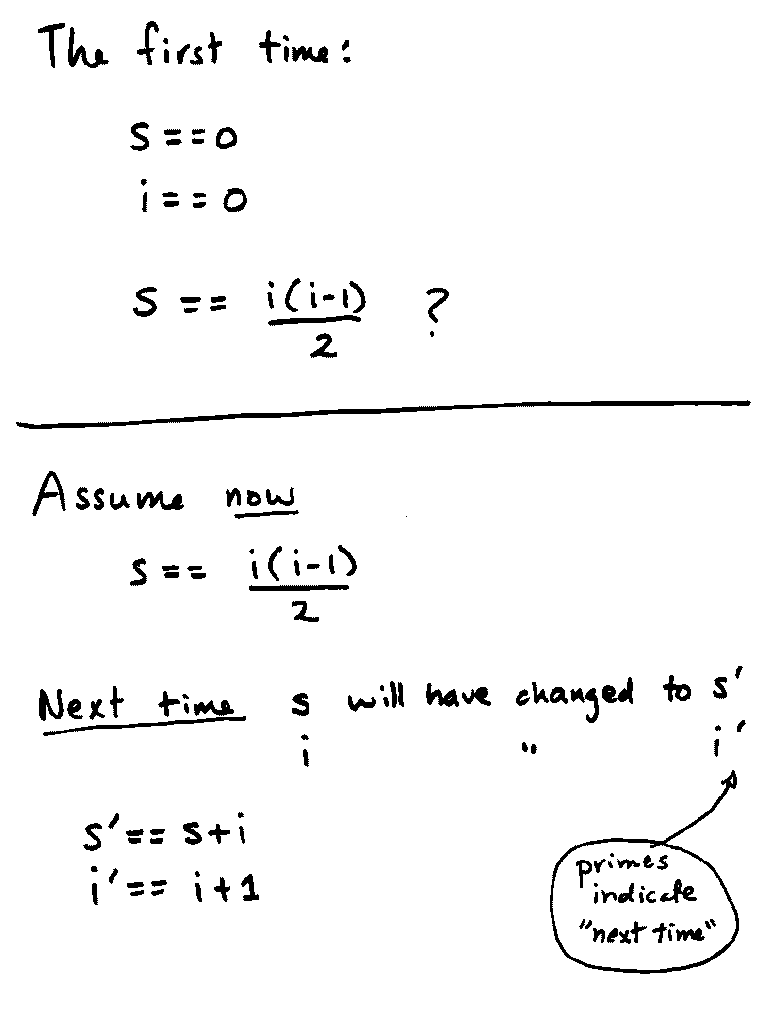 The first time:
s == 0
i == 0
s == i(i-1)/2 ?
Assume now
s == i(i-1)/2
Next time s will have changed to s'
i " i'
s' == s+i
i' == i+1
primes
indicate
"next time"